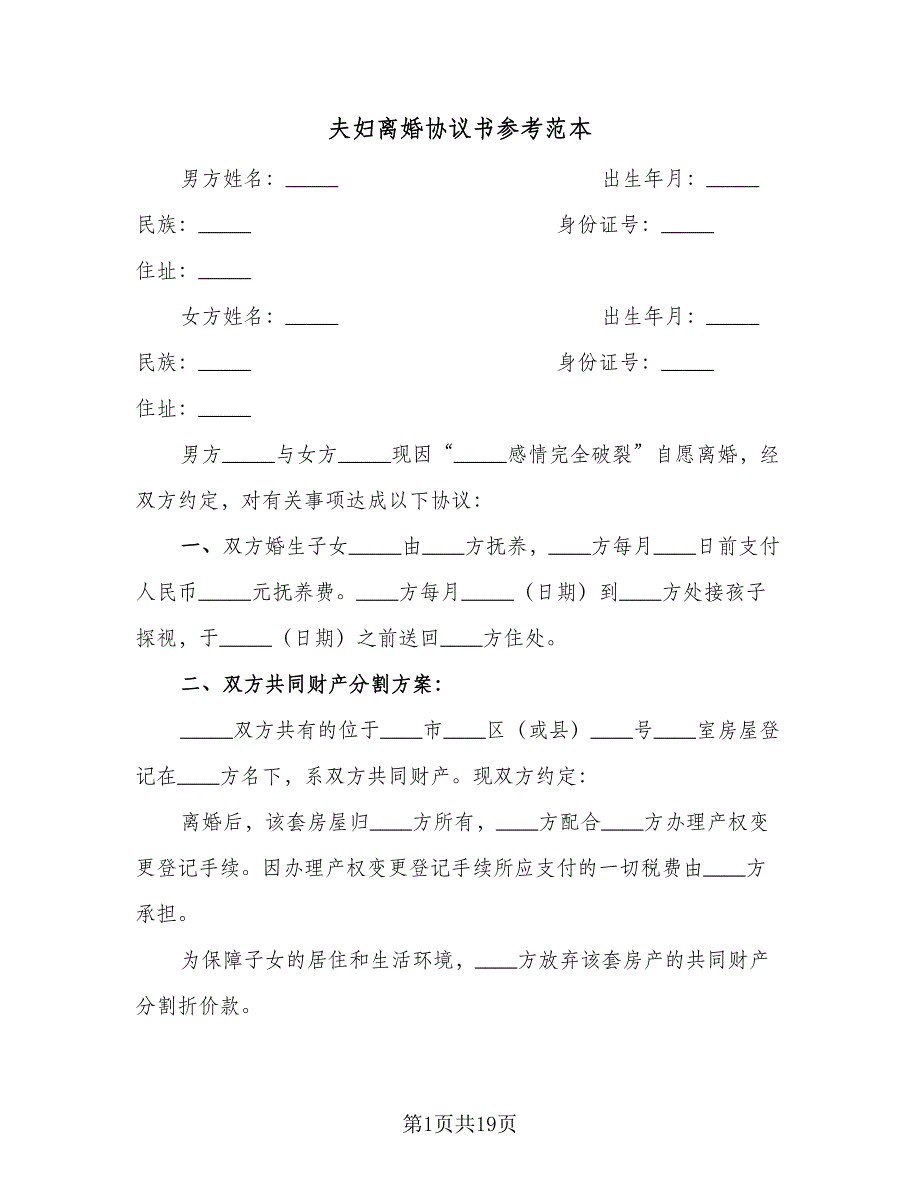 夫妇离婚协议书参考范本
男方姓名：_____ 出生年月：_____
民族：_____ 身份证号：_____
住址：_____
女方姓名：_____ 出生年月：_____
民族：_____ 身份证号：_____
住址：_____
男方_____与女方_____现因“_____感情完全破裂”自愿离婚，经
双方约定，对有关事项达成以下协议：
一、双方婚生子女_____由____方抚养，____方每月____日前支付
人民币_____元抚养费。____方每月_____（日期）到____方处接孩子
探视，于_____（日期）之前送回____方住处。
二、双方共同财产分割方案：
_____双方共有的位于____市____区（或县）____号____室房屋登
记在____方名下，系双方共同财产。现双方约定：
离婚后，该套房屋归____方所有，____方配合____方办理产权变
更登记手续。因办理产权变更登记手续所应支付的一切税费由____方
承担。
为保障子女的居住和生活环境，____方放弃该套房产的共同财产
分割折价款。
第1页共19页